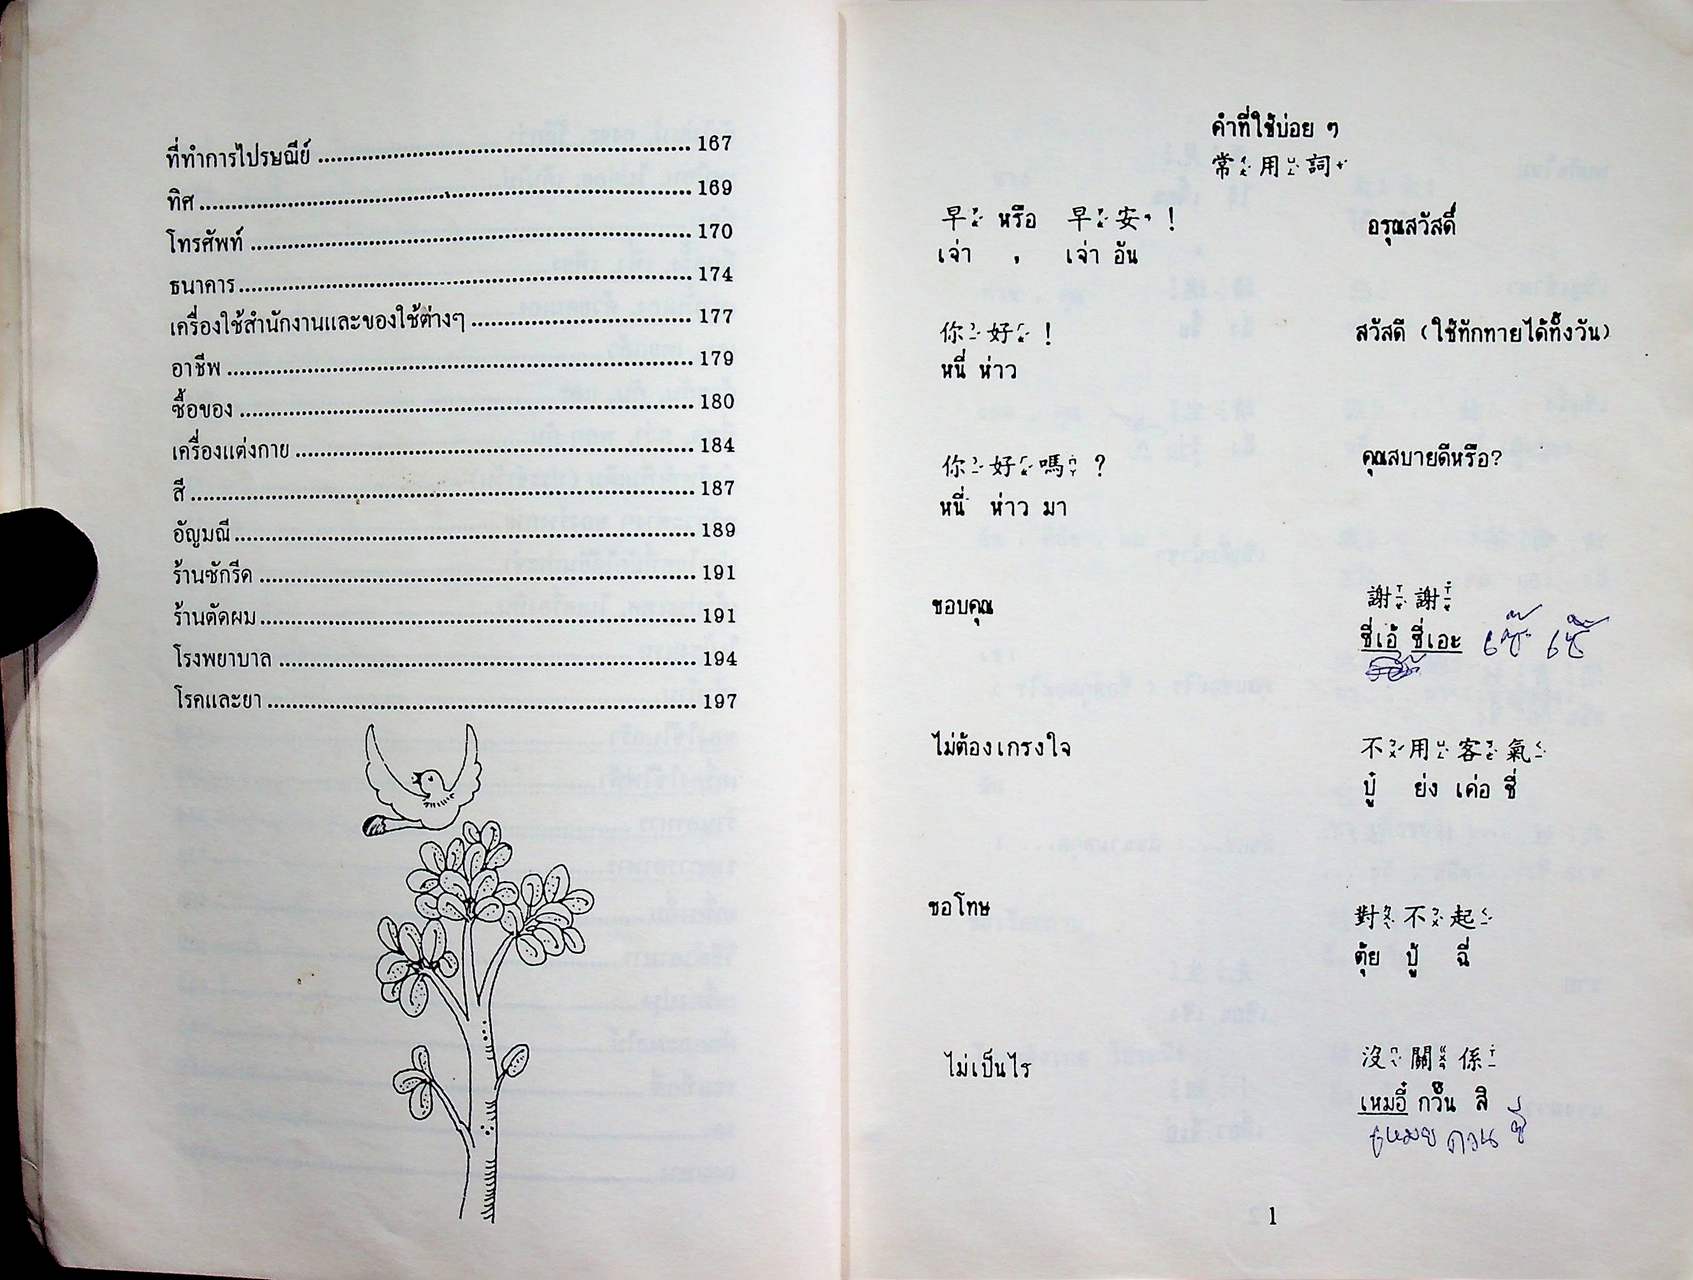 ที่ทำการไปรษณีย์ ........ 167
ทิศ ........ 169
โทรศัพท์ ........ 170
ธนาคาร ........ 174
เครื่องใช้สำนักงานและของใช้ต่างๆ ........ 177
อาชีพ ........ 179
ซื้อของ ........ 180
เครื่องแต่งกาย ........ 184
สี ........ 187
อัญมณี ........ 189
ร้านซักรีด ........ 191
ร้านตัดผม ........ 191
โรงพยาบาล ........ 194
โรคและยา ........ 197
คำที่ใช้บ่อย ๆ
常用詞
早 หรือ 早安! อรุณสวัสดิ์
เจ่า , เจ่า อัน
你好! สวัสดี (ใช้ทักทายได้ทั้งวัน)
หนี่ ห่าว
你好嗎? คุณสบายดีหรือ?
หนี่ ห่าว มา
ขอบคุณ 謝謝
ชี่เอ้ ชี่เอะ เซี๊ เซี๊
ไม่ต้องเกรงใจ 不用客氣
ปู๋ ย่ง เค่อ ชี่
ขอโทษ 對不起
ตุ้ย ปู้ ฉี่
ไม่เป็นไร 沒關係
เหมอี๋ กวัน สิ
เหมย กวน ซี
1